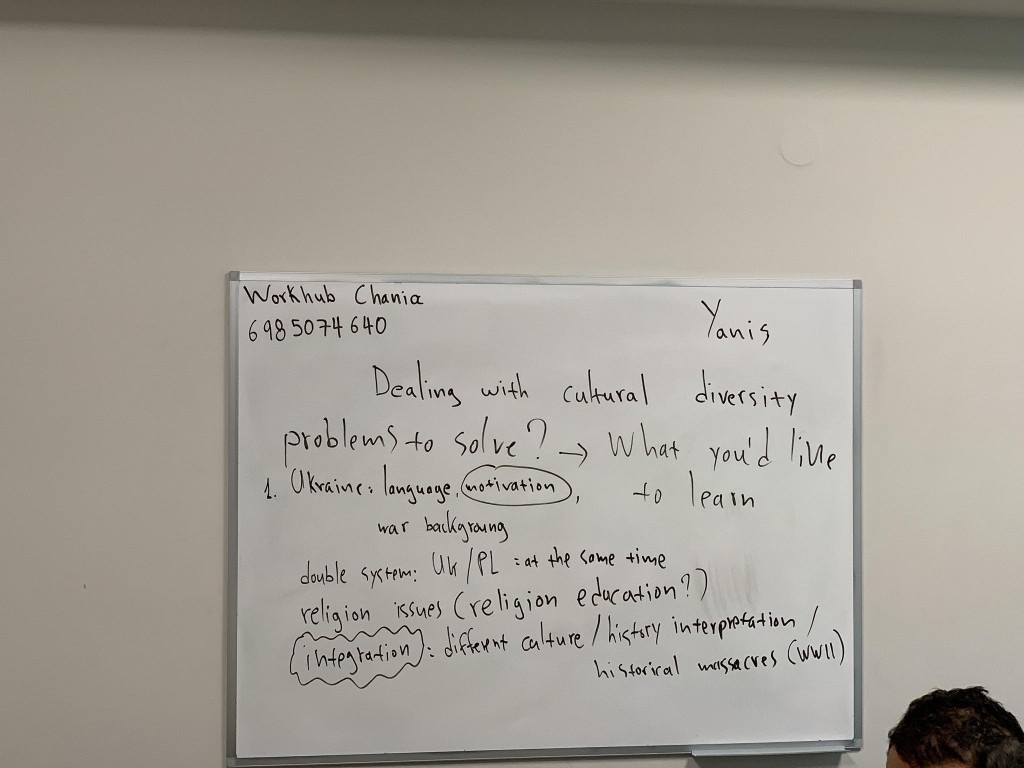 Workhub Chania
6985074640
Yanis
Dealing with cultural diversity
problems to solve? → What you'd like
to learn
1. Ukraine: language, motivation,
war backgroung
double system: UK/PL = at the same time
religion issues (religion education?)
integration: different culture / history interpretation /
historical massacres (WWII)